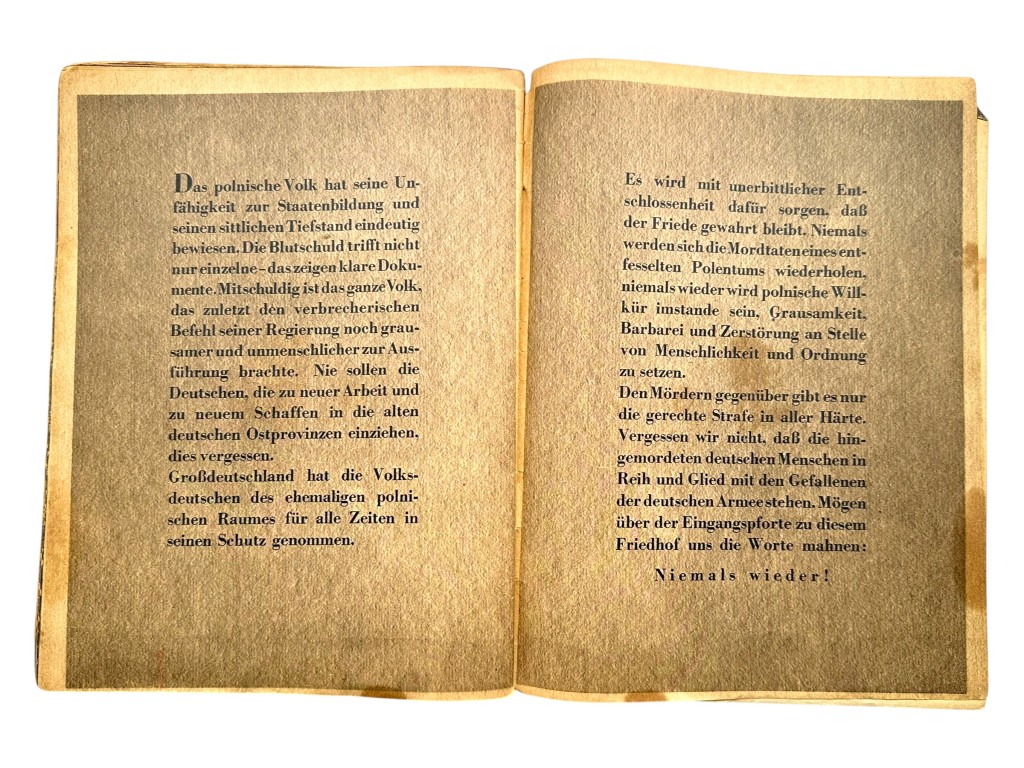 Das polnische Volk hat seine Un-
fähigkeit zur Staatenbildung und
seinen sittlichen Tiefstand eindeutig
bewiesen. Die Blutschuld trifft nicht
nur einzelne – das zeigen klare Doku-
mente. Mitschuldig ist das ganze Volk,
das zuletzt den verbrecherischen
Befehl seiner Regierung noch grau-
samer und unmenschlicher zur Aus-
führung brachte. Nie sollen die
Deutschen, die zu neuer Arbeit und
zu neuem Schaffen in die alten
deutschen Ostprovinzen einziehen,
dies vergessen.
Großdeutschland hat die Volks-
deutschen des ehemaligen polni-
schen Raumes für alle Zeiten in
seinen Schutz genommen.
Es wird mit unerbittlicher Ent-
schlossenheit dafür sorgen, daß
der Friede gewahrt bleibt. Niemals
werden sich die Mordtaten eines ent-
fesselten Polentums wiederholen,
niemals wieder wird polnische Will-
kür imstande sein, Grausamkeit,
Barbarei und Zerstörung an Stelle
von Menschlichkeit und Ordnung
zu setzen.
Den Mördern gegenüber gibt es nur
die gerechte Strafe in aller Härte.
Vergessen wir nicht, daß die hin-
gemordeten deutschen Menschen in
Reih und Glied mit den Gefallenen
der deutschen Armee stehen. Mögen
über der Eingangspforte zu diesem
Friedhof uns die Worte mahnen:
Niemals wieder!